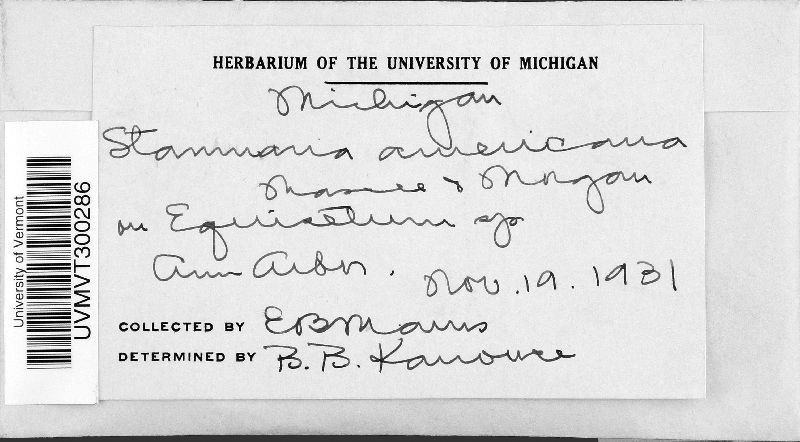 HERBARIUM OF THE UNIVERSITY OF MICHIGAN
Michigan
Stamnaria americana
Massee & Morgan
on Equisetum sp
Ann Arbor. Nov. 19. 1931
COLLECTED BY EBMains
DETERMINED BY B. B. Kanouse
University of Vermont
UVMVT300286